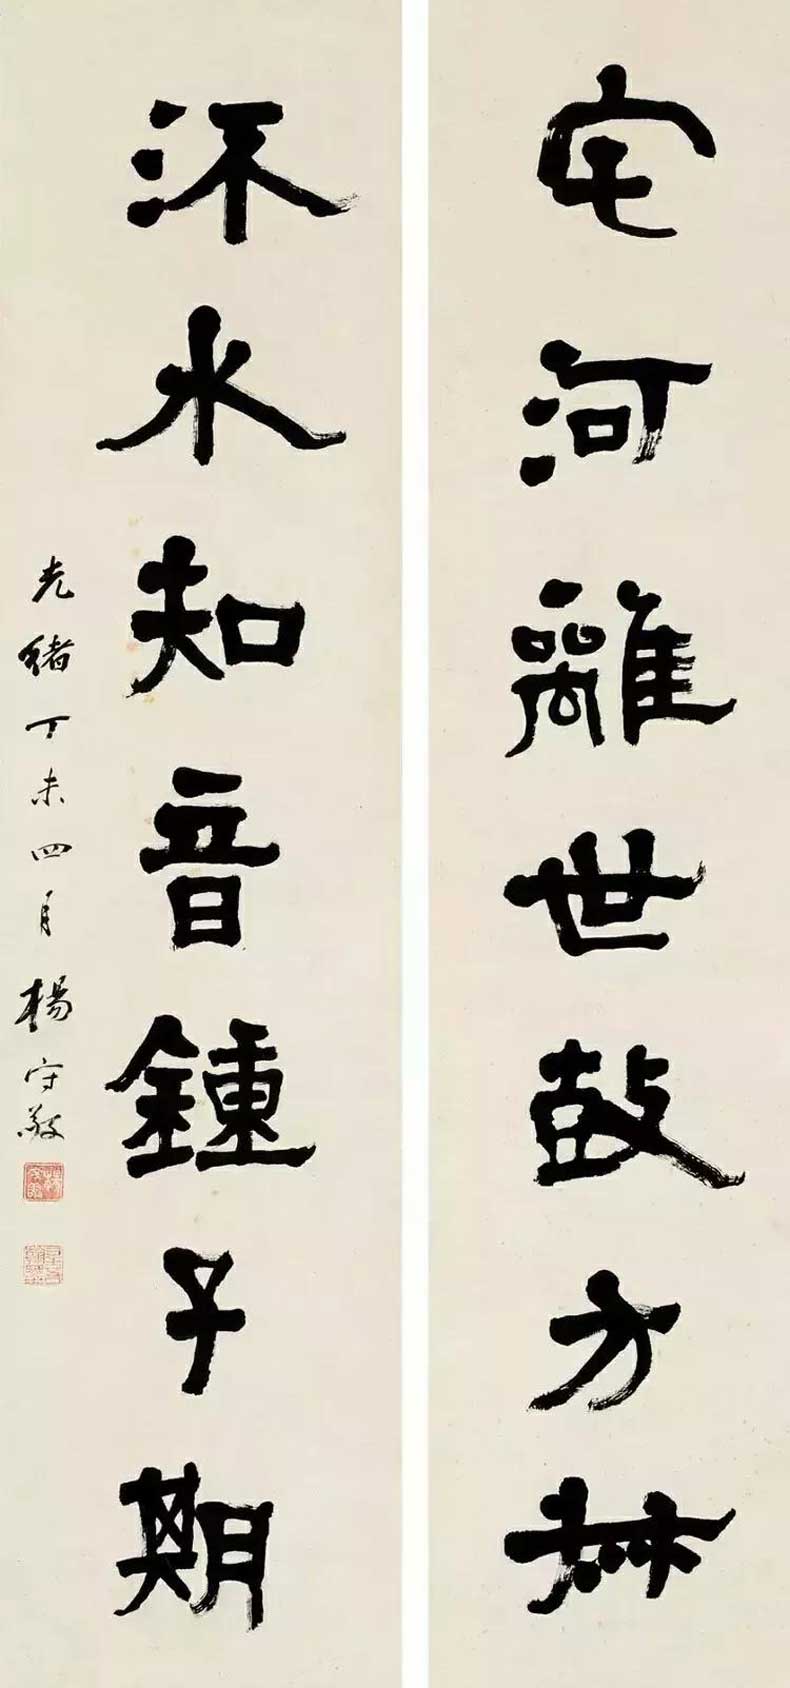 宅河離世鼓方叔
水知音鍾子期
光緒丁未四月楊守敬